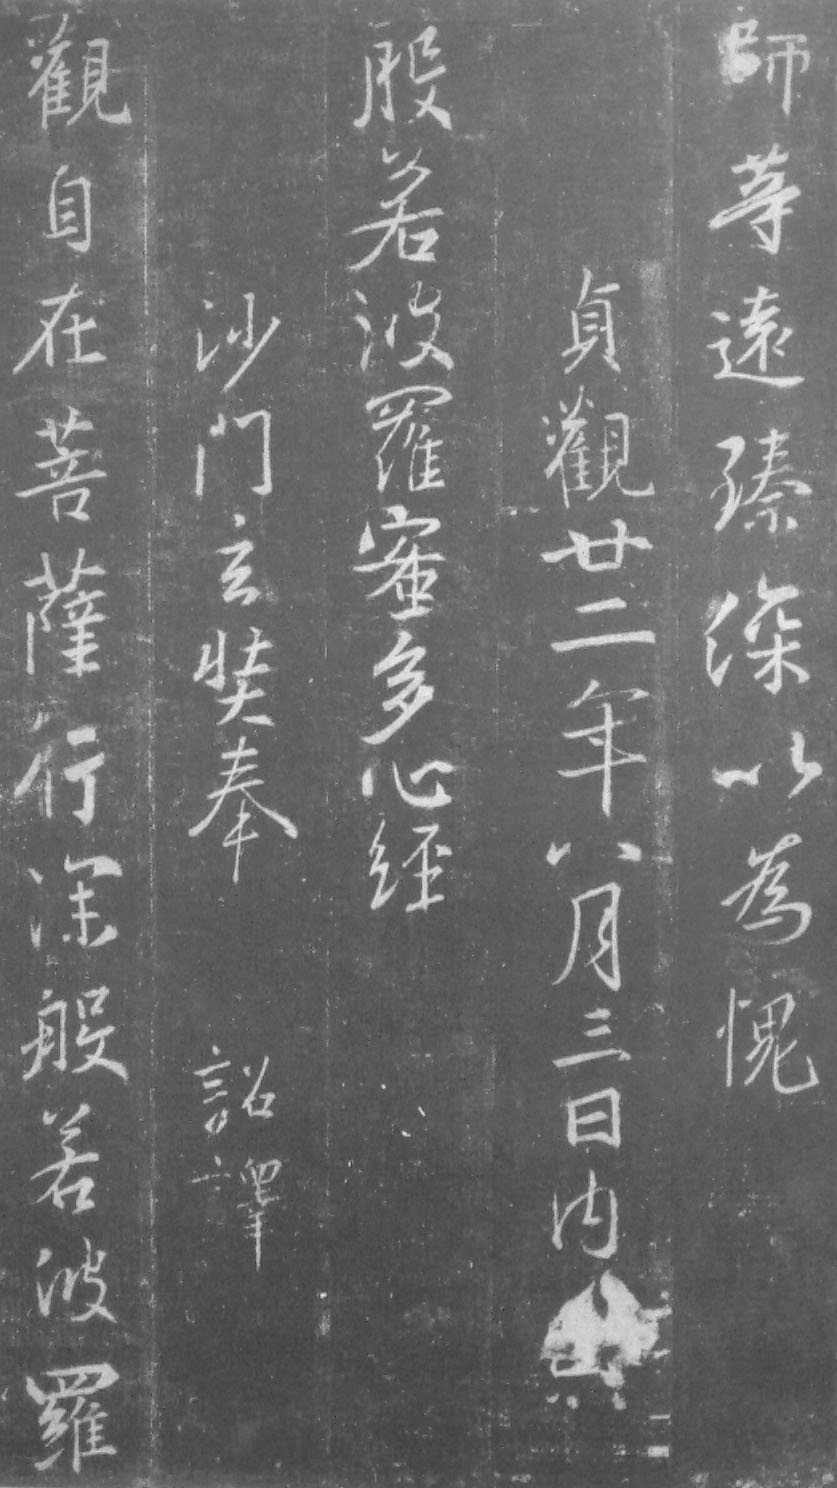 師等遠臻深以為愧
貞觀廿二年八月三日內
般若波羅蜜多心經
沙門玄奘奉 詔譯
觀自在菩薩行深般若波羅